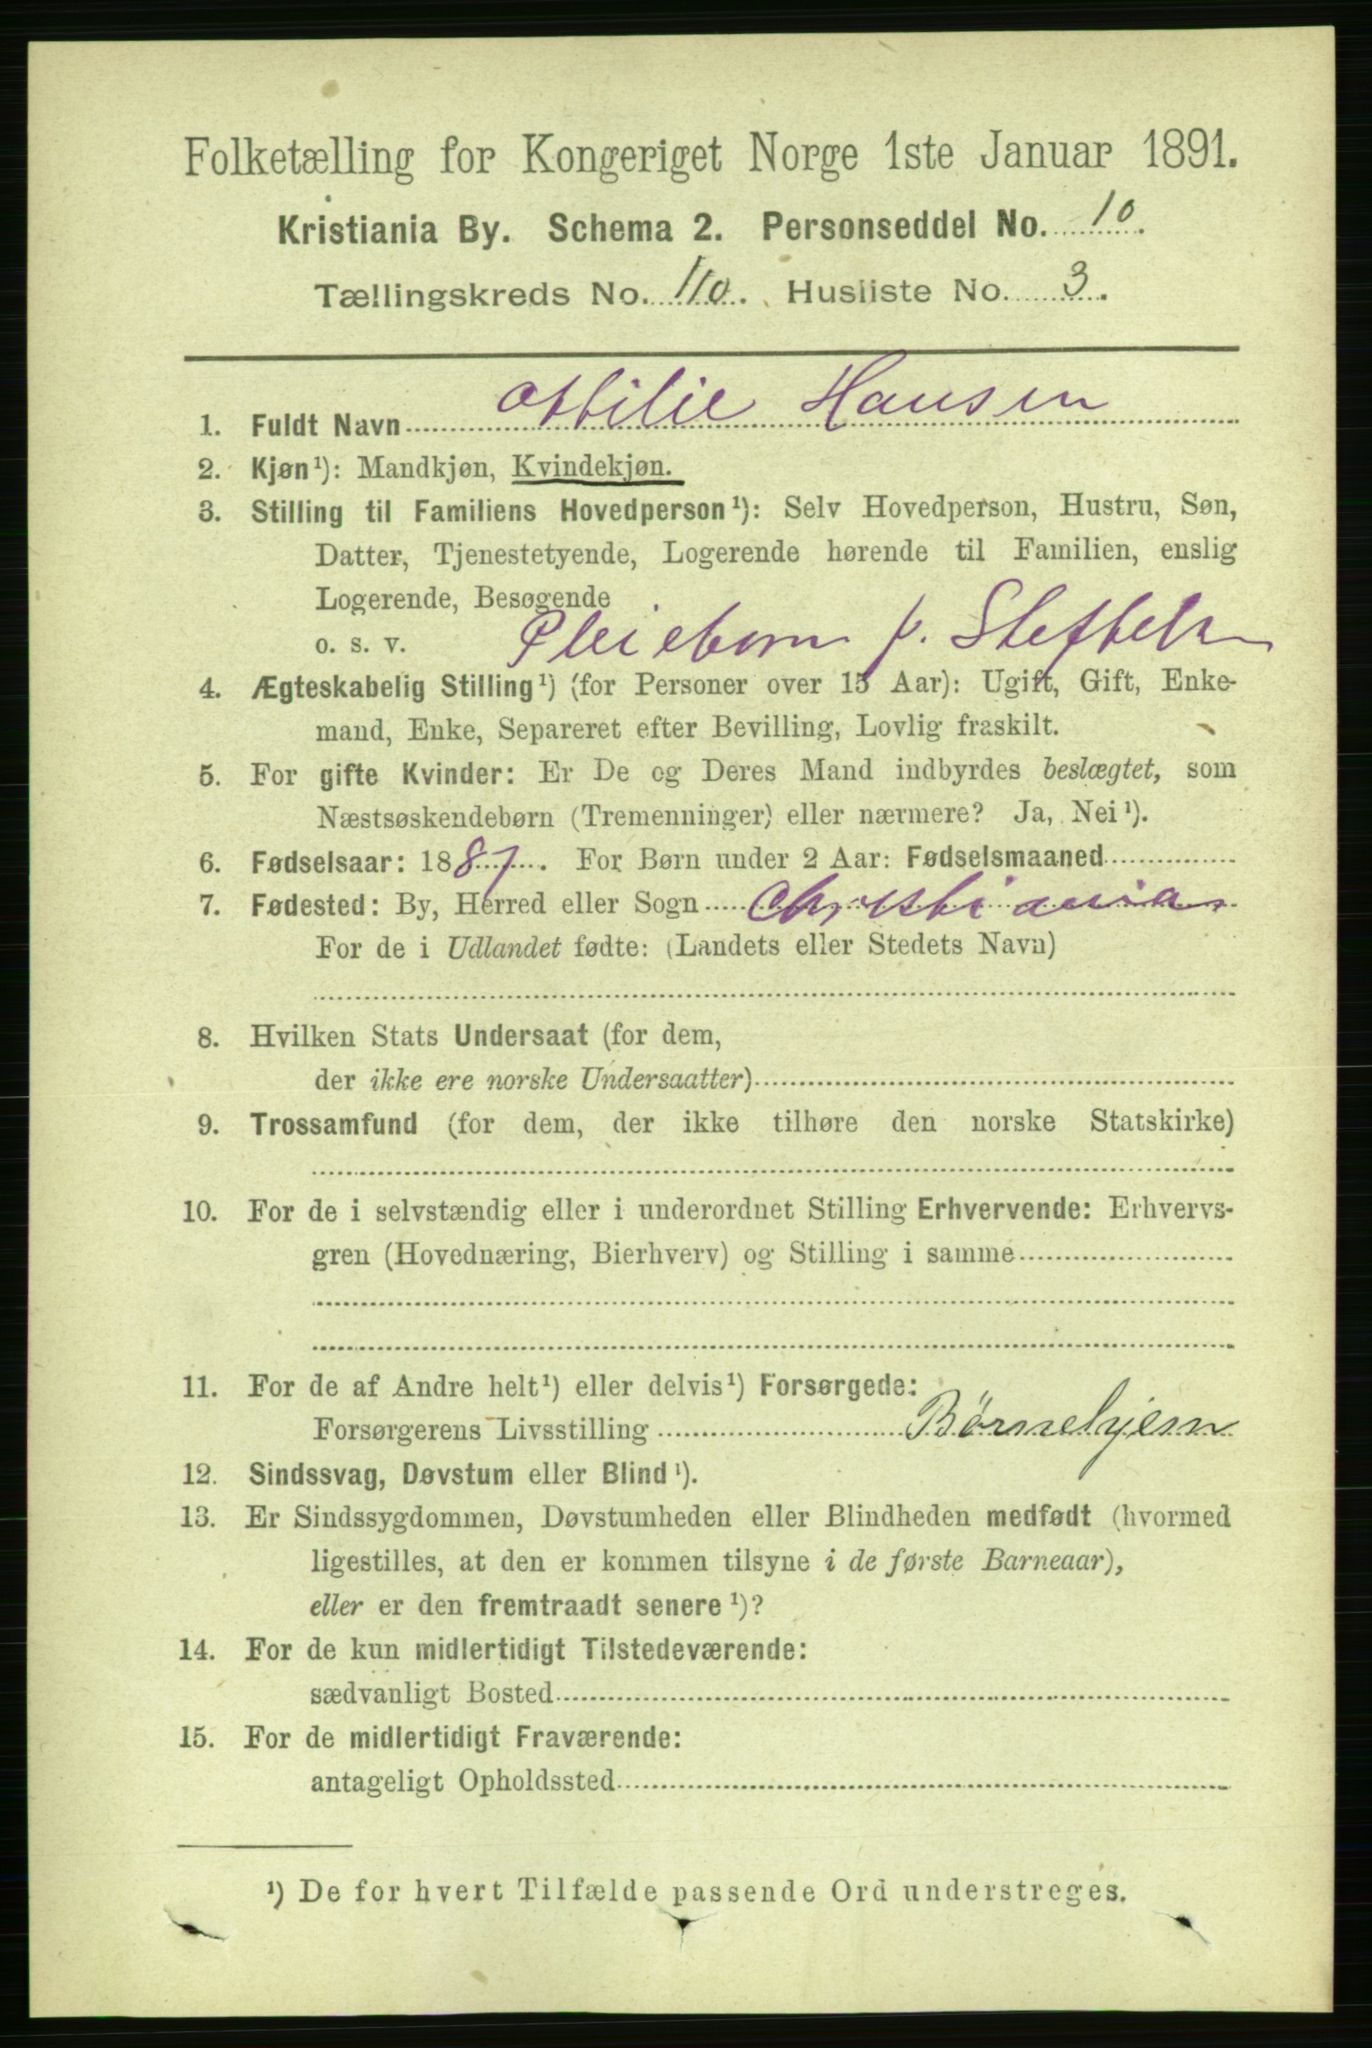 Folketælling for Kongeriget Norge 1ste Januar 1891.
Kristiania By. Schema 2. Personseddel No. 10.
Tællingskreds No. 110. Husliste No. 3.
1. Fuldt Navn Ottilie Hansen
2. Kjøn¹): Mandkjøn, Kvindekjøn.
3. Stilling til Familiens Hovedperson¹): Selv Hovedperson, Hustru, Søn,
Datter, Tjenestetyende, Logerende hørende til Familien, enslig
Logerende, Besøgende
o. s. v. Pleiebarn
4. Ægteskabelig Stilling¹) (for Personer over 15 Aar): Ugift, Gift, Enke-
mand, Enke, Separeret efter Bevilling, Lovlig fraskilt.
5. For gifte Kvinder: Er De og Deres Mand indbyrdes beslægtet, som
Næstsøskendebørn (Tremenninger) eller nærmere? Ja, Nei¹).
6. Fødselsaar: 1887. For Børn under 2 Aar: Fødselsmaaned
7. Fødested: By, Herred eller Sogn Christiania
For de i Udlandet fødte: (Landets eller Stedets Navn)
8. Hvilken Stats Undersaat (for dem,
der ikke ere norske Undersaatter)
9. Trossamfund (for dem, der ikke tilhøre den norske Statskirke)
10. For de i selvstændig eller i underordnet Stilling Erhvervende: Erhvervs-
gren (Hovednæring, Bierhverv) og Stilling i samme
11. For de af Andre helt¹) eller delvis¹) Forsørgede:
Forsørgerens Livsstilling Børnehjem
12. Sindssvag, Døvstum eller Blind¹).
13. Er Sindssygdommen, Døvstumheden eller Blindheden medfødt (hvormed
ligestilles, at den er kommen tilsyne i de første Barneaar),
eller er den fremtraadt senere¹)?
14. For de kun midlertidigt Tilstedeværende:
sædvanligt Bosted
15. For de midlertidigt Fraværende:
antageligt Opholdssted
¹) De for hvert Tilfælde passende Ord understreges.